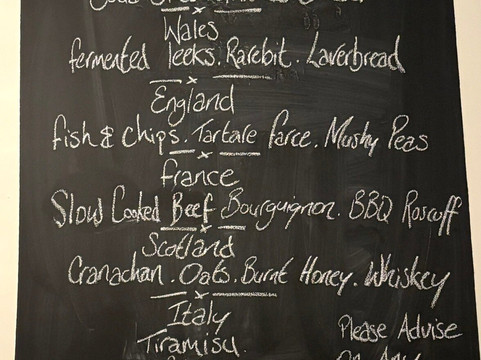 Wales
fermented leeks. Rarebit. Laverbread
England
fish & chips. Tartare farce. Mushy Peas
france
Slow Cooked Beef Bourguignon. BBQ Roscoff
Scotland
Cranachan. Oats. Burnt Honey. Whiskey
Italy
Tiramisu.
Please Advise
on Any